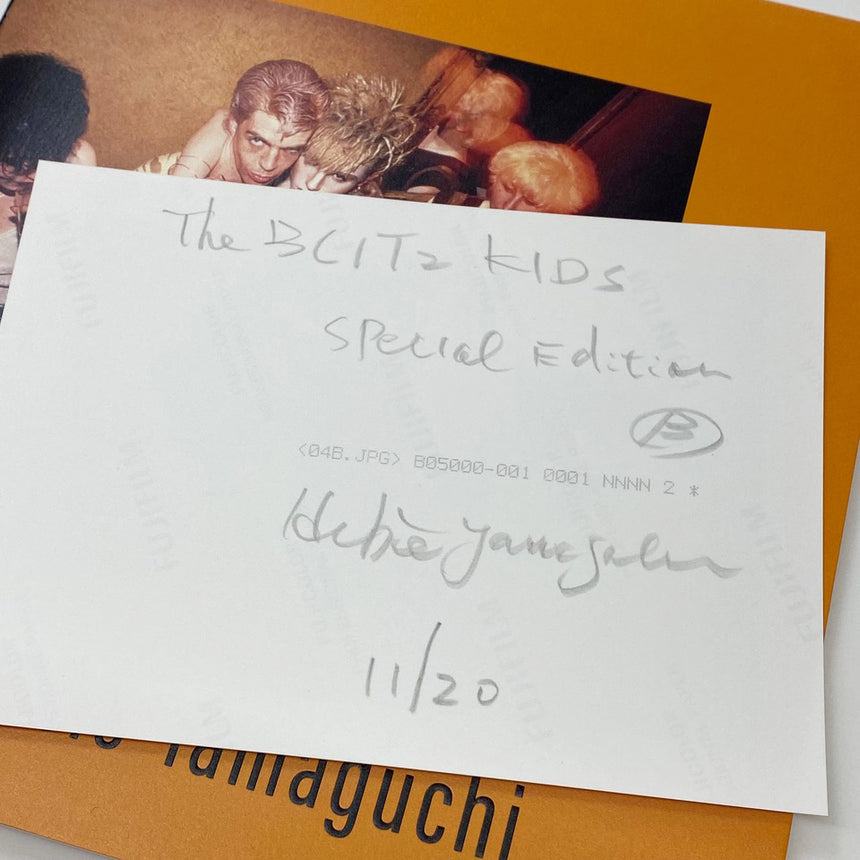 The BLITz KIDS
Special Edition
B
<04B.JPG> B05000-001 0001 NNNN 2 *
11/20
Yamaguchi